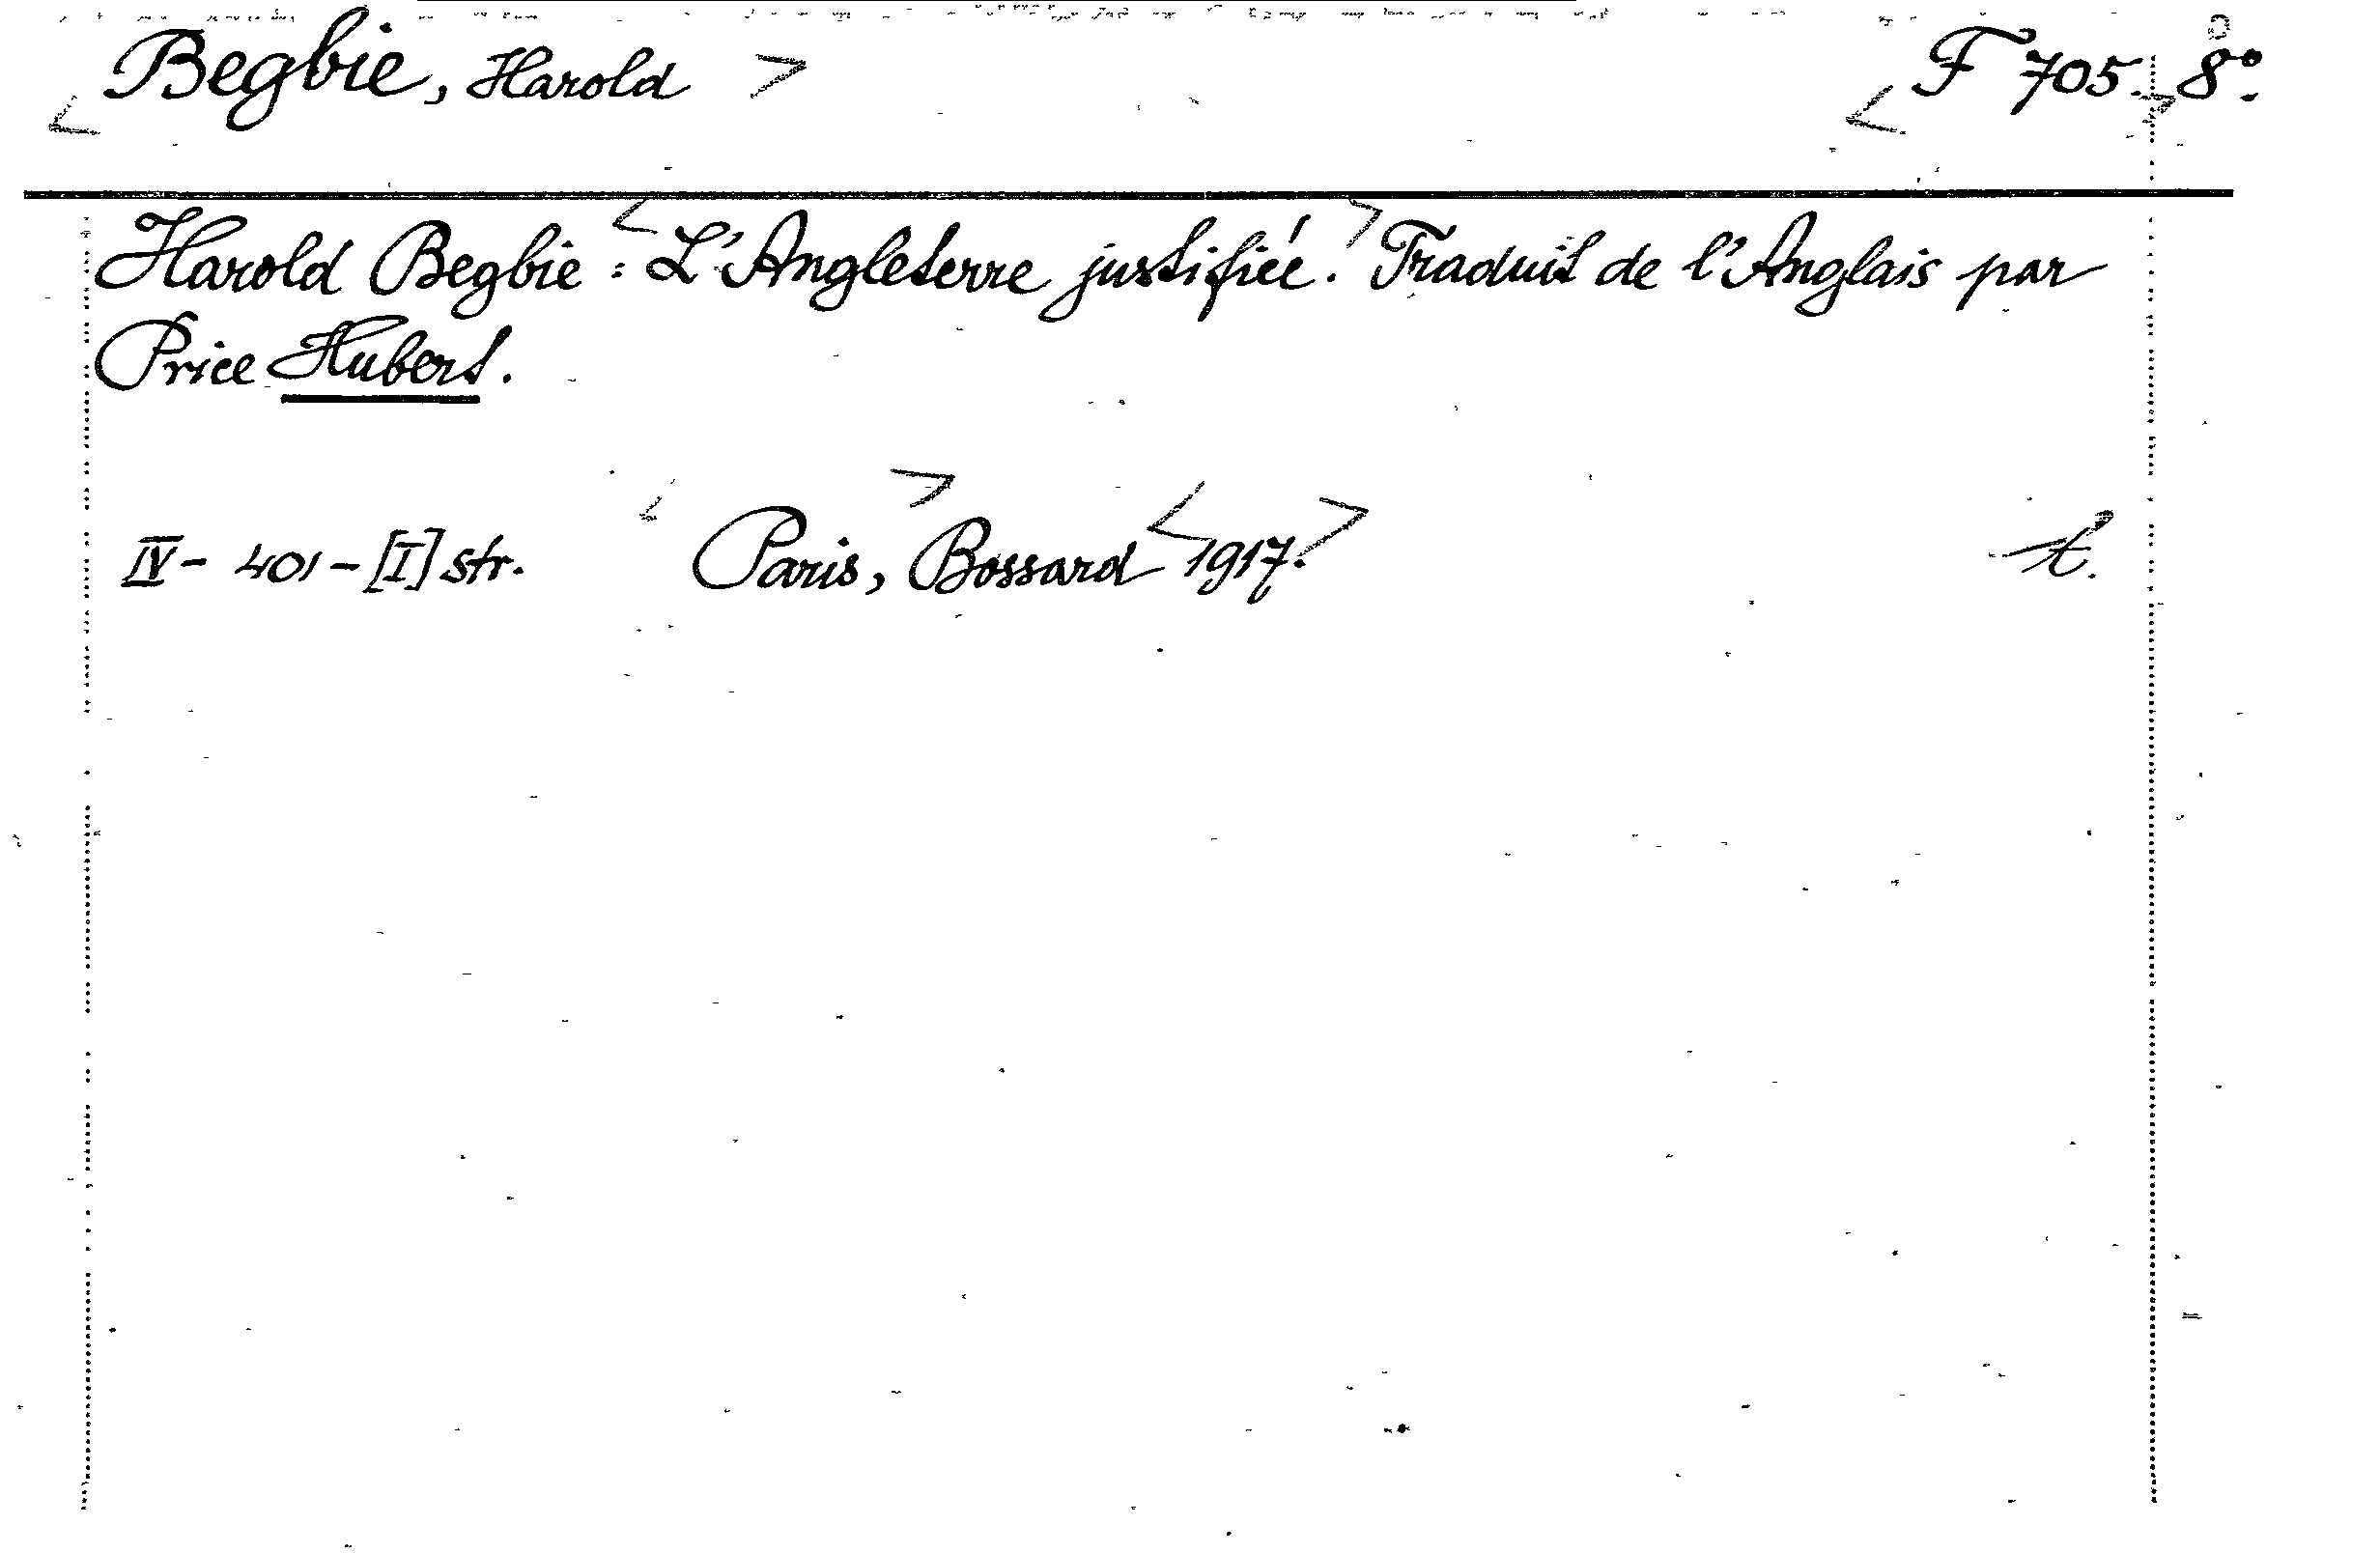 Begbie, Harold F 705. 8°.
Harold Begbie : L'Angleterre justifiée. Traduit de l'Anglais par
Price Hubert.
IV - 401 - [I] str. Paris, Bossard 1917.